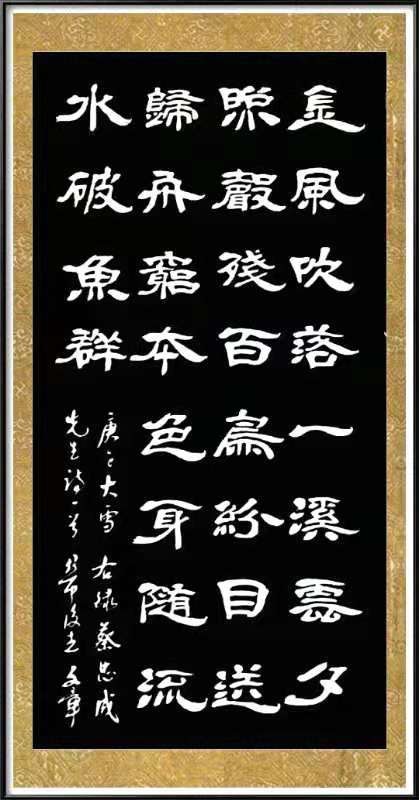 金風吹落一溪雲夕
照聲殘百鳥紛目送
歸舟窮本色耳隨流
水破魚群
庚子大雪右録蔡忠成
先生詩一首